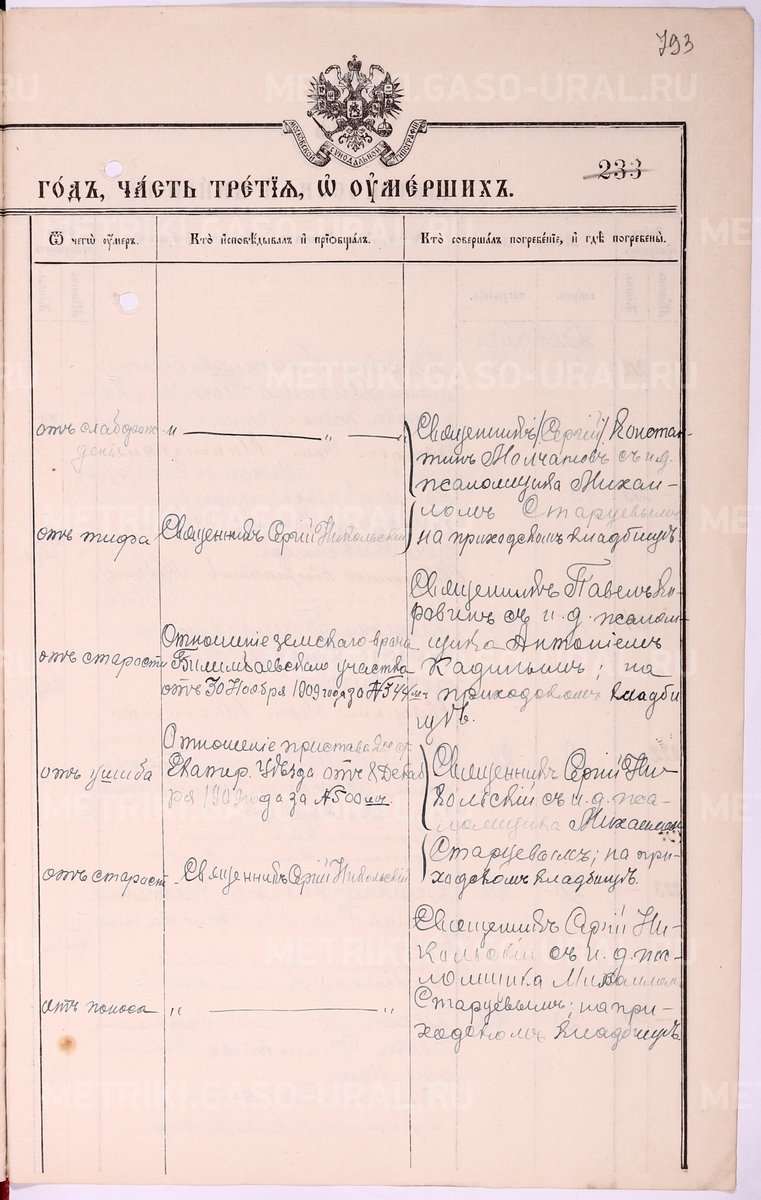 793
МОСКОВСКОЙ СѴНОДАЛЬНОЙ ТИПОГРАФІИ
233
ГО́ДЪ, ЧА́СТЬ ТРЕ́ТІѦ, Ѡ҆ ОУ҆МЕ́РШИХЪ.
Ѿ чегѡ̀ оу҆́меръ.
Кто̀ и҆сповѣ́дывалъ и҆ прїѡбща́лъ.
Кто̀ соверша́лъ погребе́нїе, и҆ гдѣ̀ погребены̀.
отъ слаборож-
денія
„ — „ —
Священникъ /Сергій/ Констан-
тинъ Молчановъ съ и.д.
псаломщика Михаи-
ломъ Старцевымъ
на приходскомъ кладбищѣ.
отъ тифа
Священникъ Сергій Никольскій
отъ старости
Отношеніе земскаго врача
Билимбаевскаго участка
отъ 30 Ноября 1909 года за №
Священникъ Павелъ
съ и. д. псалом-
щика Антоніемъ
Кадинымъ; на
приходскомъ кладби
щѣ.
отъ ушиба
Отношеніе пристава
Екатер. Уѣзда отъ 8 Декаб
ря 1909 года за № 500
Священникъ Сергій Ни-
кольскій съ и. д. пса-
ломщика Михаиломъ
Старцевымъ; на при-
ходскомъ кладбищѣ.
отъ старост.
Священникъ Сергій Никольскій
Священникъ Сергій Ни-
кольскій съ и. д. пса-
ломщика Михаиломъ
Старцевымъ; на при-
ходскомъ кладбищѣ.
отъ поноса
„ — „
METRIKI.GASO-URAL.RU